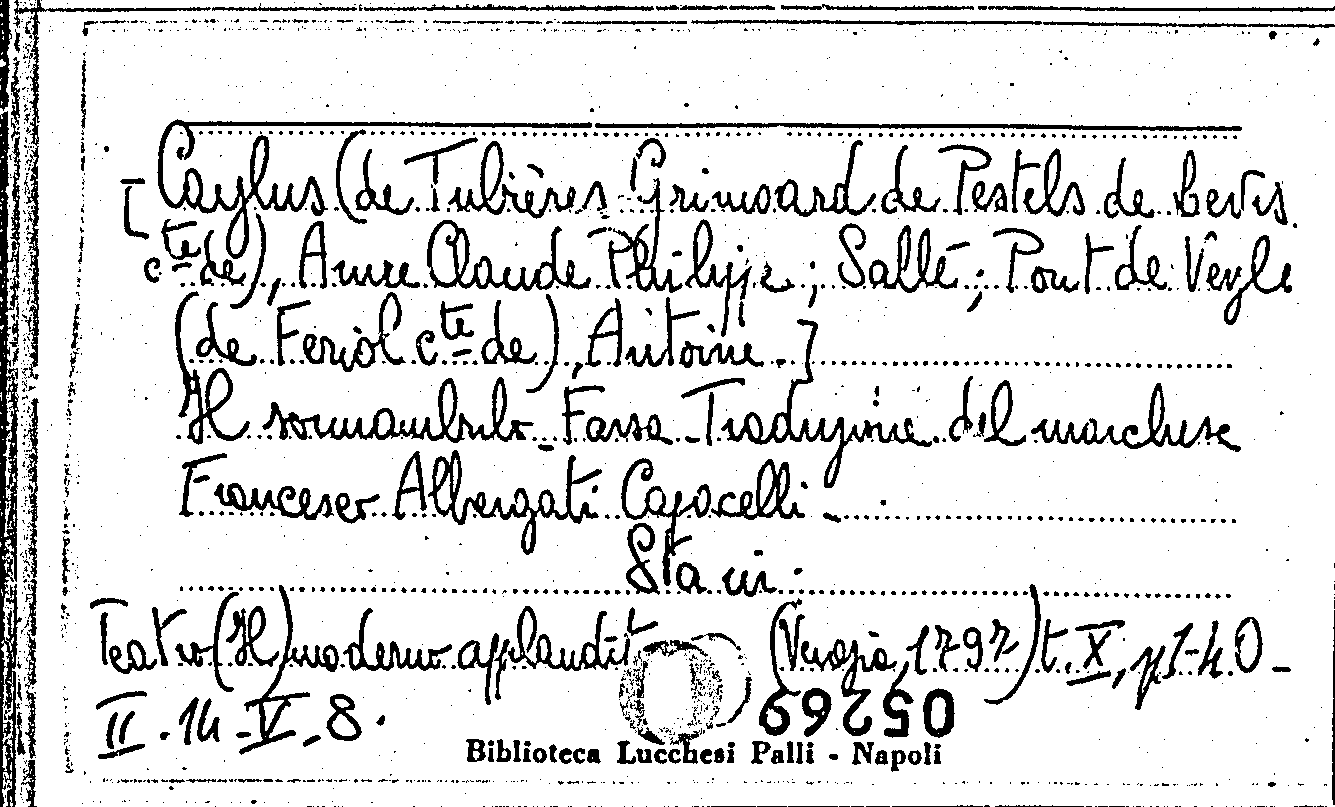 [Caylus (de Tubières Grimoard de Pestels de Levis
cte de), Anne Claude Philippe; Sallé; Pont de Veyle
(de Feriol cte de), Antoine.]
Il sonnambulo - Farsa - Traduzione del marchese
Francesco Albergati Capacelli -
Sta in:
Teatro (Il) moderno applaudit (Venezia, 1797) t. X, p 1-40 -
II. 14 - V. 8.
05269
Biblioteca Lucchesi Palli - Napoli